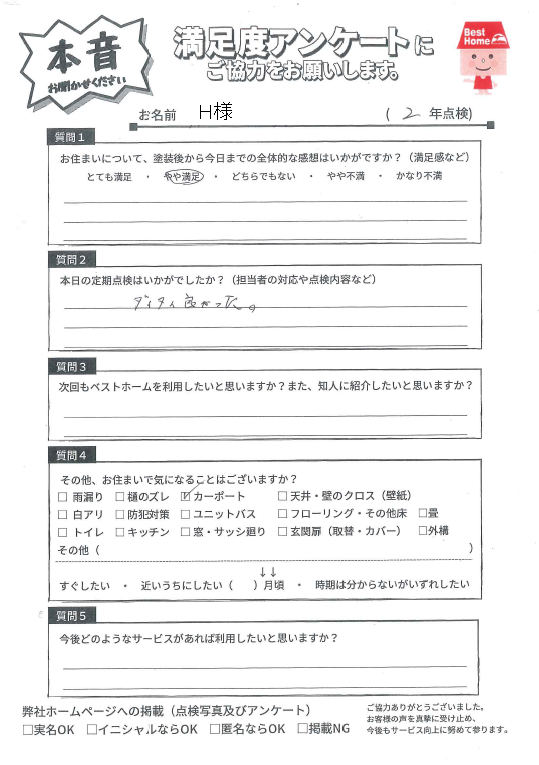 本音
お聞かせください
満足度アンケートに
ご協力をお願いします。
Best
Home
お名前 H様 ( 2 年点検)
質問1
お住まいについて、塗装後から今日までの全体的な感想はいかがですか？（満足感など）
とても満足 ・ やや満足 ・ どちらでもない ・ やや不満 ・ かなり不満
質問2
本日の定期点検はいかがでしたか？（担当者の対応や点検内容など）
ダイタイ良かった。
質問3
次回もベストホームを利用したいと思いますか？また、知人に紹介したいと思いますか？
質問4
その他、お住まいで気になることはございますか？
□ 雨漏り □ 樋のズレ ☑ カーポート □ 天井・壁のクロス（壁紙）
□ 白アリ □ 防犯対策 □ ユニットバス □ フローリング・その他床 □畳
□ トイレ □ キッチン □ 窓・サッシ廻り □ 玄関扉（取替・カバー） □外構
その他（ ）
↓↓
すぐしたい ・ 近いうちにしたい（ ）月頃 ・ 時期は分からないがいずれしたい
質問5
今後どのようなサービスがあれば利用したいと思いますか？
弊社ホームページへの掲載（点検写真及びアンケート）
□実名OK □イニシャルならOK □匿名ならOK □掲載NG
ご協力ありがとうございました。
お客様の声を真摯に受け止め、
今後もサービス向上に努めて参ります。